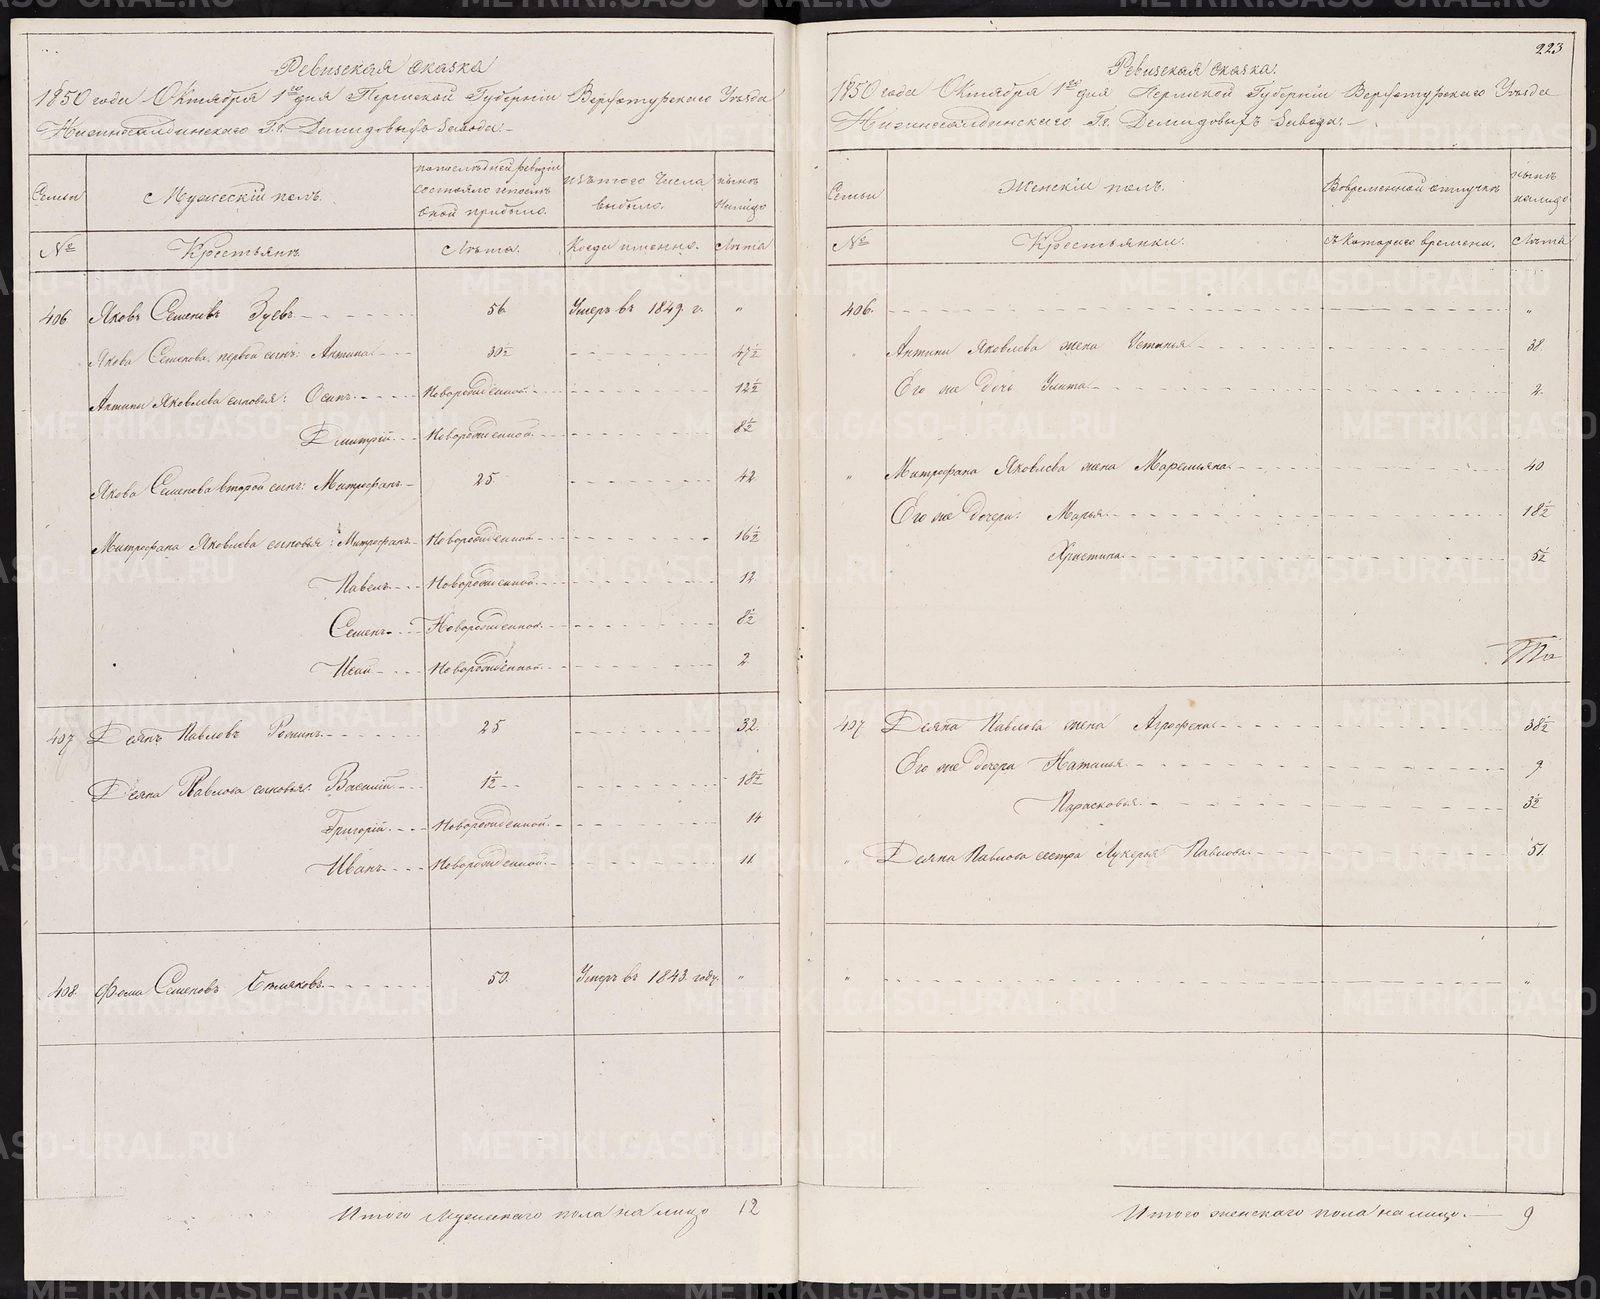 Ревизская сказка
1850 года Октября 1го дня Пермской Губернии Верхотурского Уѣзда
Нижнесалдинского Гг. Демидовыхъ Завода:
Семьи
Мужескій полъ.
попослѣдней ревизіи состояло ипослѣ оной прибыло.
изътого числа выбыло.
нынѣ налицо
№
Крестьянъ
Лѣта.
Когда именно.
Лѣта
406 Яковъ Семеновъ Зуевъ 56. Умеръ въ 1849. г. "
Якова Семенова первой сынъ: Антипа 30½ 47½
Антипа Яковлева сыновья: Осипъ Новорожденной 12½
Дмитрій Новорожденной 8½
Якова Семенова второй сынъ: Митрофанъ 25 42
Митрофана Яковлева сыновья: Митрофанъ Новорожденной 16½
Павелъ Новорожденной 12
Семенъ Новорожденной 8½
Исай Новорожденной 2
407 Деянъ Павловъ 25 32.
Деяна Павлова сыновья: Василій 1½ 18½
Григорій Новорожденной 14
Иванъ Новорожденной 11
408. Фома Семеновъ 50. Умеръ въ 1843 году. "
Итого Мужескаго пола на лицо 12
223
Ревизская сказка.
1850 года Октября 1го дня Пермской Губерніи Верхотурского Уѣзда
Нижнесалдинского Гг. Демидовыхъ Завода:
Семьи
Женскій полъ.
Вовременной отлучкѣ
нынѣ налицо
№
Крестьянки.
съ Котораго времени.
Лѣта
406. "
Антипа Яковлева жена Устинья 38.
Его же дочь Улита 2.
" Митрофана Яковлева жена Маремьяна 40
Его же дочери: Марья 18½
Христина 5½
407 Деяна Павлова жена Агрофена 38½
Его же дочери Наталья 9
Парасковья 3½
" Деяна Павлова сестра Лукерья Павлова 51.
" "
Итого женскаго пола на лицо. 9